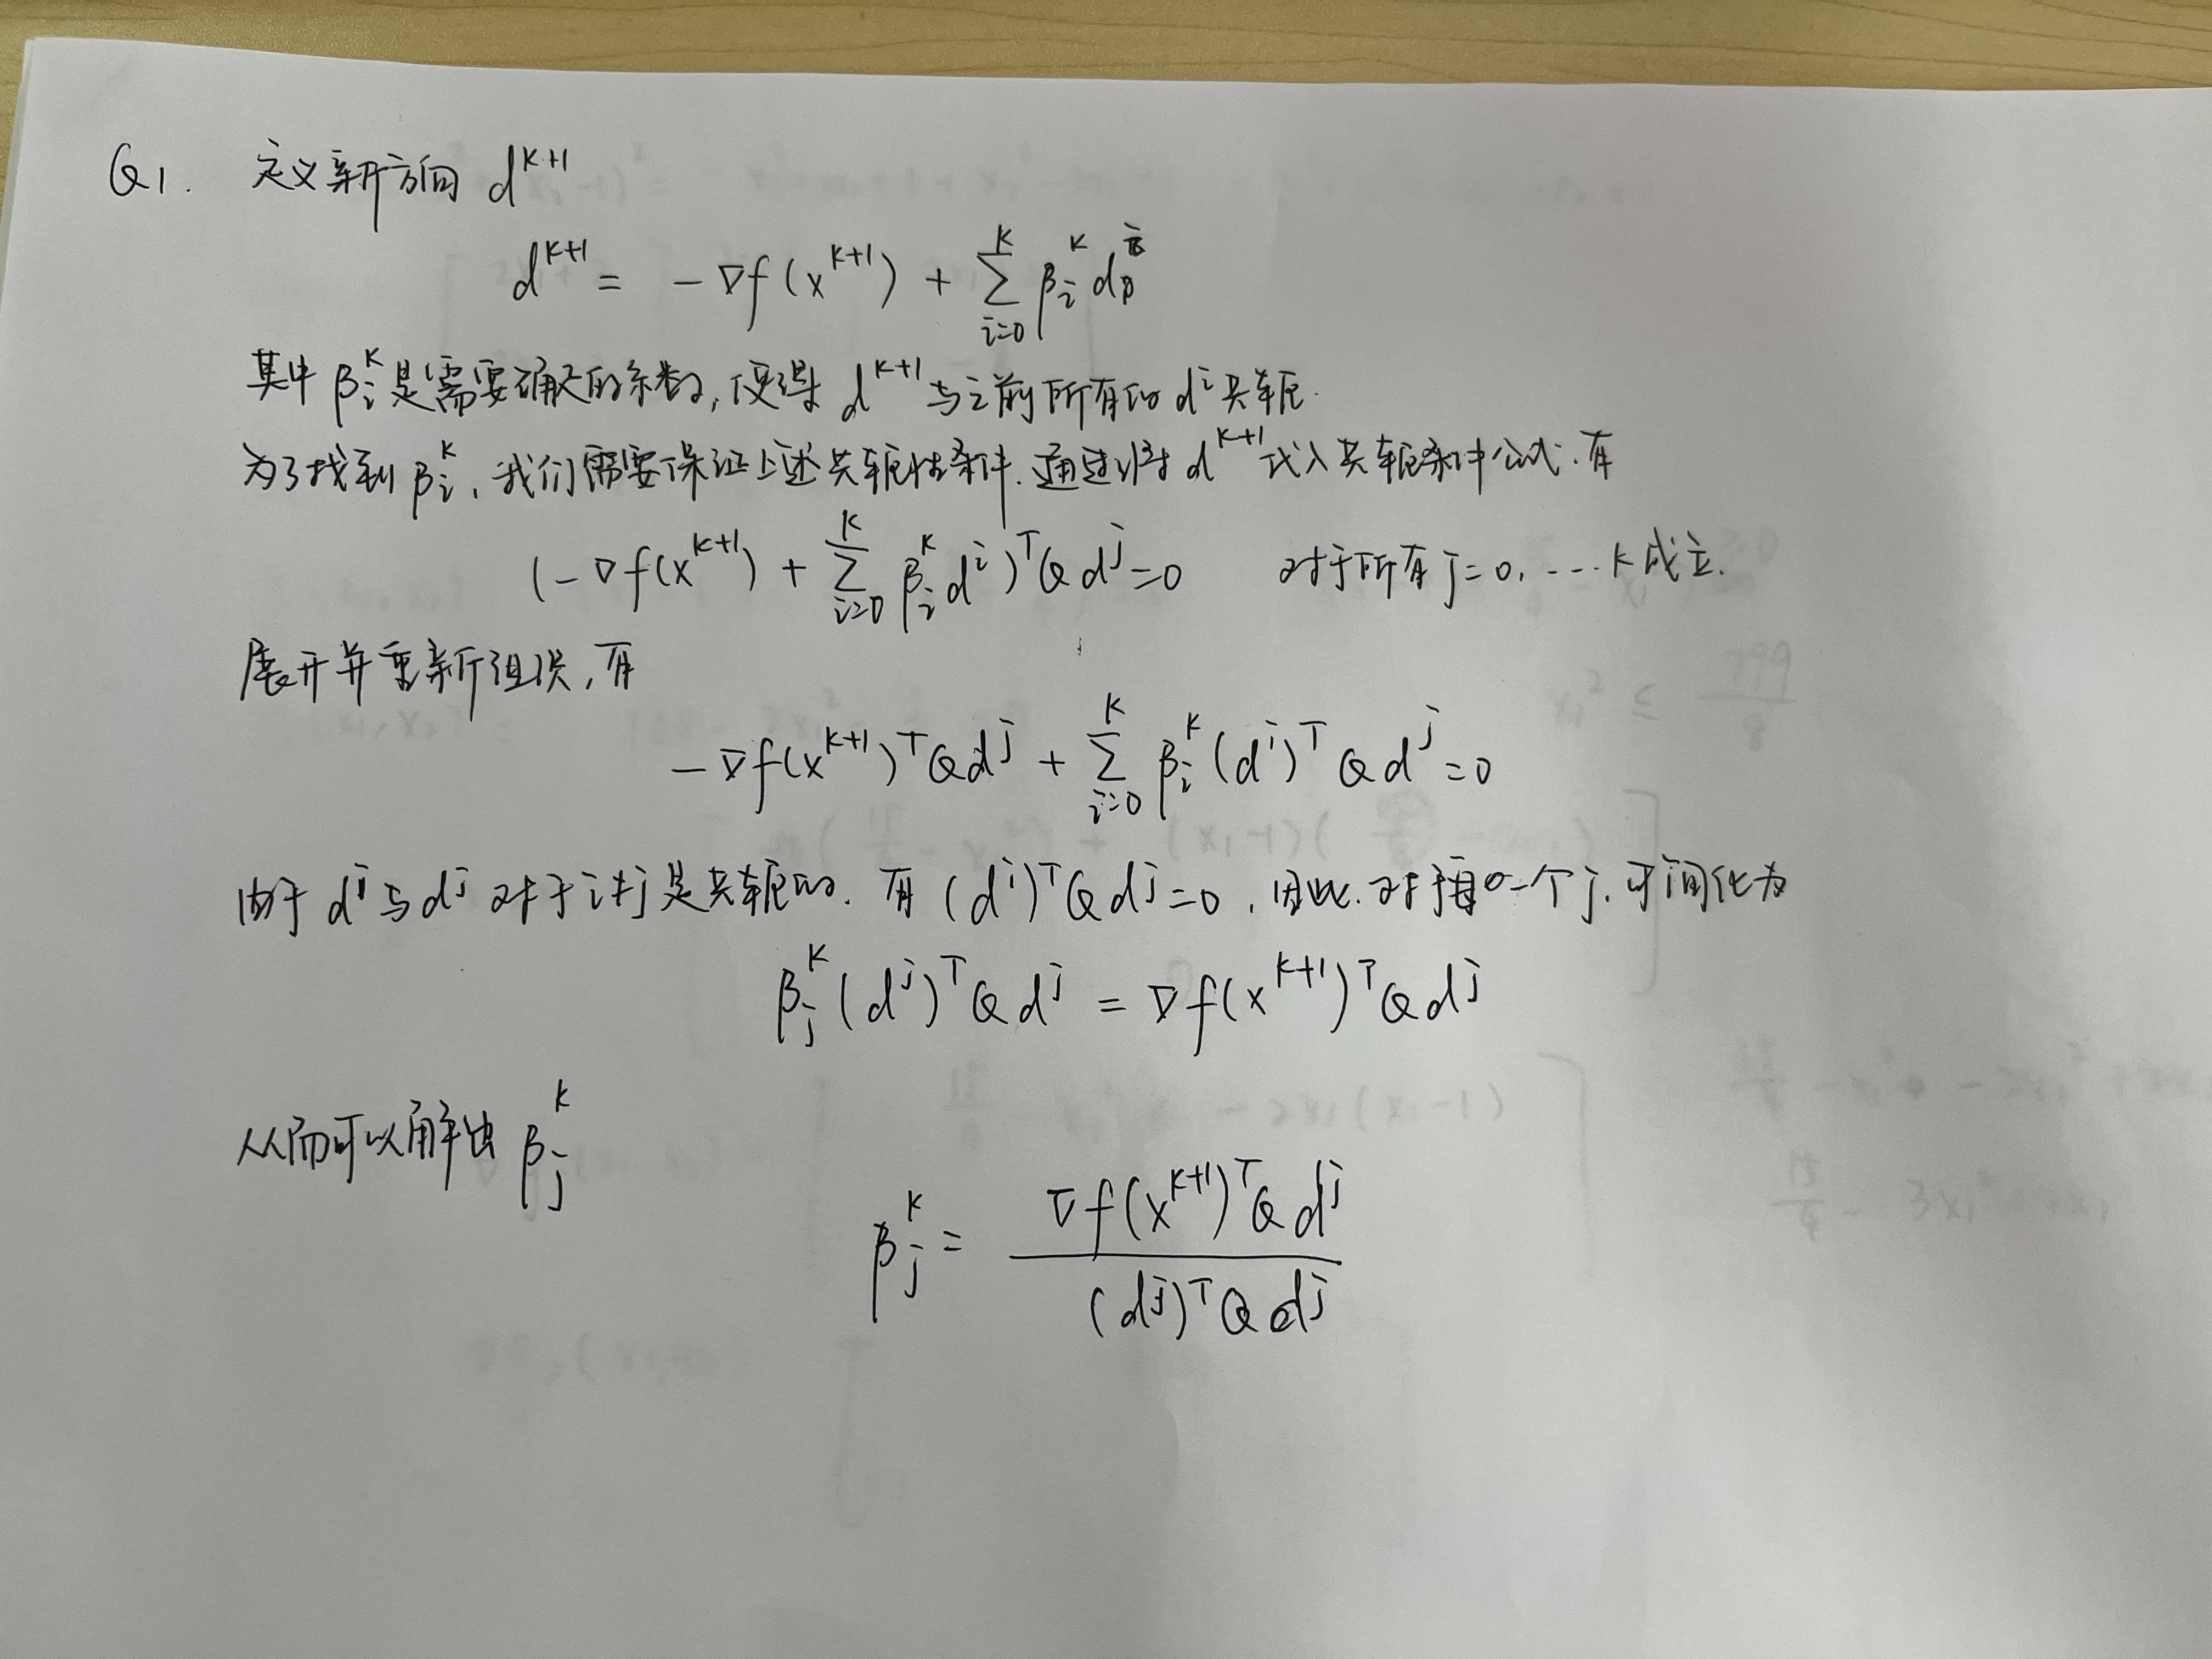 Q1. 定义新方向 d^{k+1}
d^{k+1} = -∇f(x^{k+1}) + ∑_{i=0}^{k} β_i^k d^i
其中 β_i^k 是需要确定的系数, 使得 d^{k+1} 与之前所有的 d^i 共轭.
为了找到 β_i^k, 我们需要保证上述共轭性条件. 通过将 d^{k+1} 代入共轭条件公式. 有
(-∇f(x^{k+1}) + ∑_{i=0}^{k} β_i^k d^i)^T Q d^j = 0 对于所有 j=0, ... k 成立.
展开并重新组织, 有
-∇f(x^{k+1})^T Q d^j + ∑_{i=0}^{k} β_i^k (d^i)^T Q d^j = 0
由于 d^i 与 d^j 对于 i≠j 是共轭的. 有 (d^i)^T Q d^j = 0, 因此. 对于每一个 j, 可简化为
β_j^k (d^j)^T Q d^j = ∇f(x^{k+1})^T Q d^j
从而可以解出 β_j^k
β_j^k = \frac{∇f(x^{k+1})^T Q d^j}{(d^j)^T Q d^j}